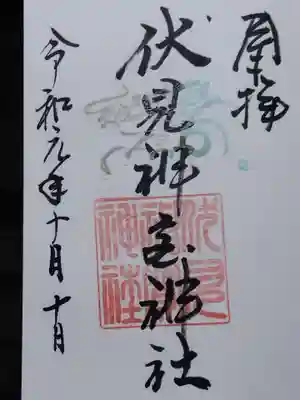 拝
伏見神宝神社
伏見
神宝
神社
令和元年十月十日